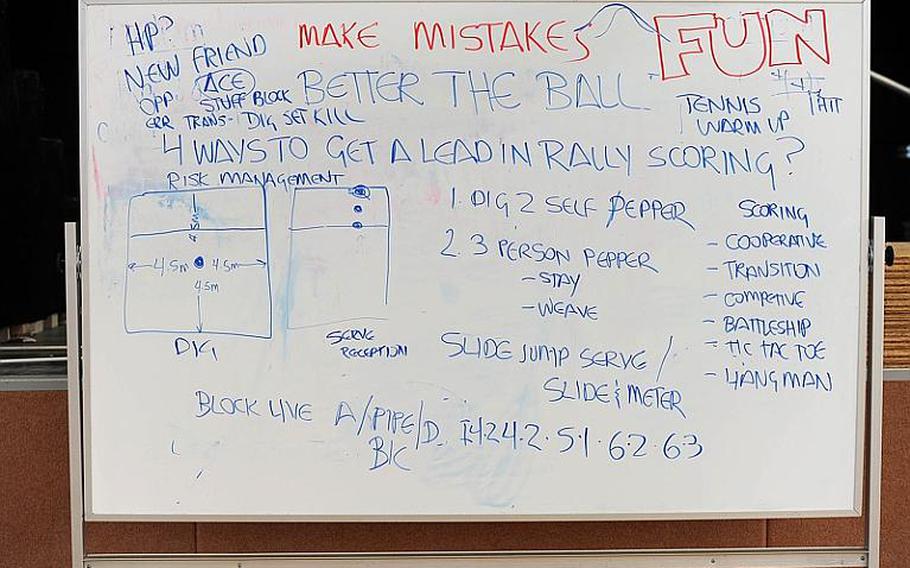 HP?
MAKE MISTAKES
FUN
NEW FRIEND
OPP
ACE
STUFF BLOCK
BETTER THE BALL
ERR TRANS- DIG SET KILL
TENNIS
WARM UP
4 WAYS TO GET A LEAD IN RALLY SCORING?
RISK MANAGEMENT
4.5m
4.5m
4.5m
4.5m
DIG
SERVE
RECEPTION
1. DIG 2 SELF PEPPER
2. 3 PERSON PEPPER
- STAY
- WEAVE
SLIDE JUMP SERVE /
SLIDE & METER
SCORING
- COOPERATIVE
- TRANSITION
- COMPETIVE
- BATTLESHIP
- TIC TAC TOE
- HANGMAN
BLOCK LIVE
A/PIPE/D
B/C
4.2 . 5.1 . 6.2 . 6.3